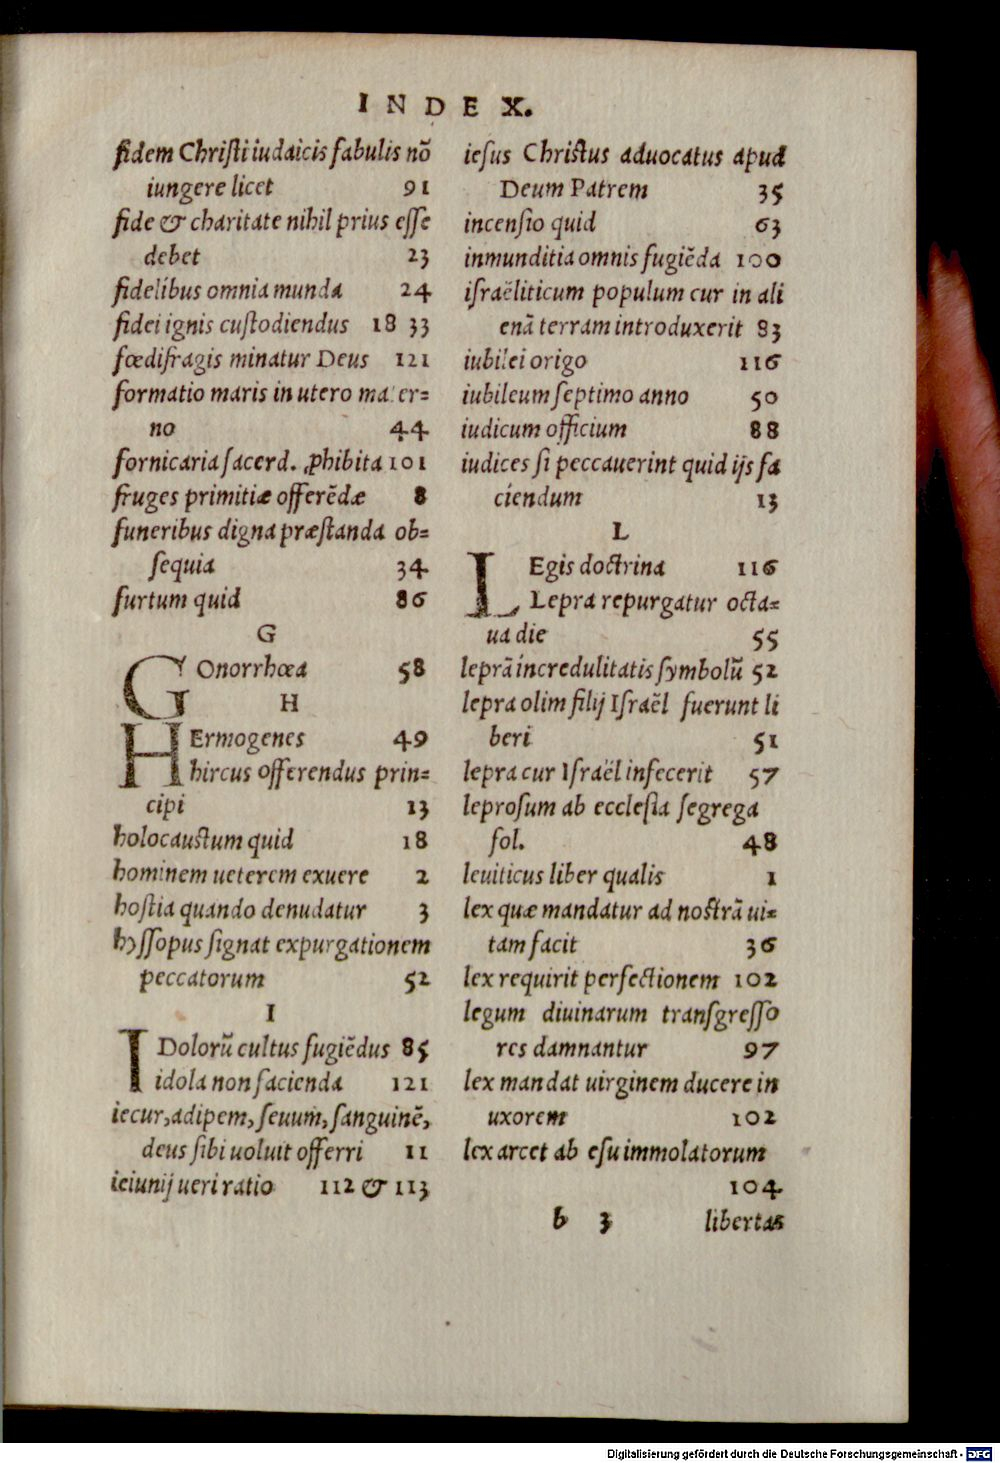 INDEX.
fidem Christi iudaicis fabulis nõ
iungere licet 91
fide & charitate nihil prius esse
debet 23
fidelibus omnia munda 24
fidei ignis custodiendus 18 33
fœdifragis minatur Deus 121
formatio maris in utero mater=
no 44
fornicaria sacerd. ꝓhibita 101
fruges primitiæ offerẽdæ 8
funeribus digna præstanda ob=
sequia 34
furtum quid 86
G
GOnorrhœa 58
H
HErmogenes 49
hircus offerendus prin=
cipi 13
holocaustum quid 18
hominem ueterem exuere 2
hostia quando denudatur 3
hyssopus signat expurgationem
peccatorum 52
I
IDolorũ cultus fugiẽdus 85
idola non facienda 121
iecur, adipem, seuum, sanguinẽ,
deus sibi uoluit offerri 11
ieiunij ueri ratio 112 & 113
iesus Christus aduocatus apud
Deum Patrem 35
incensio quid 63
inmunditia omnis fugiẽda 100
israëliticum populum cur in ali
enã terram introduxerit 83
iubilei origo 116
iubileum septimo anno 50
iudicum officium 88
iudices si peccauerint quid ijs fa
ciendum 13
L
LEgis doctrina 116
Lepra repurgatur octa=
ua die 55
leprã incredulitatis symbolũ 52
lepra olim filij Israël fuerunt li
beri 51
lepra cur Israël infecerit 57
leprosum ab ecclesia segrega
fol. 48
leuiticus liber qualis 1
lex quæ mandatur ad nostrã ui=
tam facit 36
lex requirit perfectionem 102
legum diuinarum transgresso
res damnantur 97
lex mandat uirginem ducere in
uxorem 102
lex arcet ab esu immolatorum
104
b 3 libertas
Digitalisierung gefördert durch die Deutsche Forschungsgemeinschaft - DFG